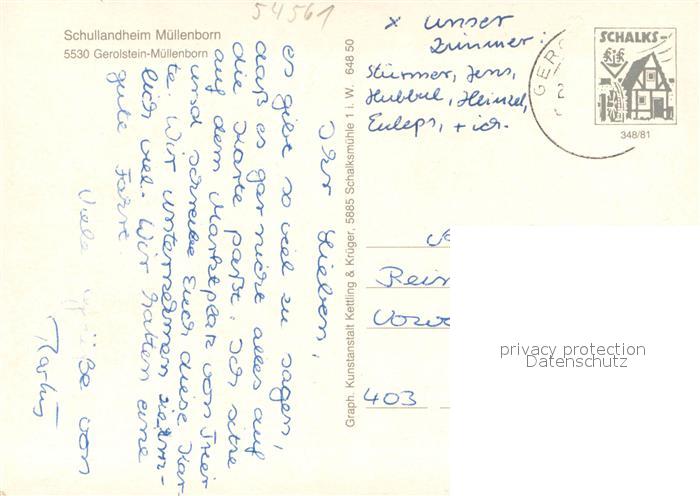 54561
Schullandheim Müllenborn
5530 Gerolstein-Müllenborn
x unser
Zimmer:
Stürmer, Jens,
Hubbel, Heinzel,
Euleps, + ich.
SCHALKS-
348/81
GERO
Ihr Lieben,
es gibt so viel zu sagen,
daß es gar nicht alles auf
die Karte paßt. Ich sitze
auf dem Marktplatz von Trier
und schreibe Euch diese Kar-
te. Wir unternehmen ziem-
lich viel. Wir hatten eine
gute Fahrt.
Viele Grüße von
Graph. Kunstanstalt Kettling & Krüger, 5885 Schalksmühle 1 i. W. 648 50
403
privacy protection
Datenschutz